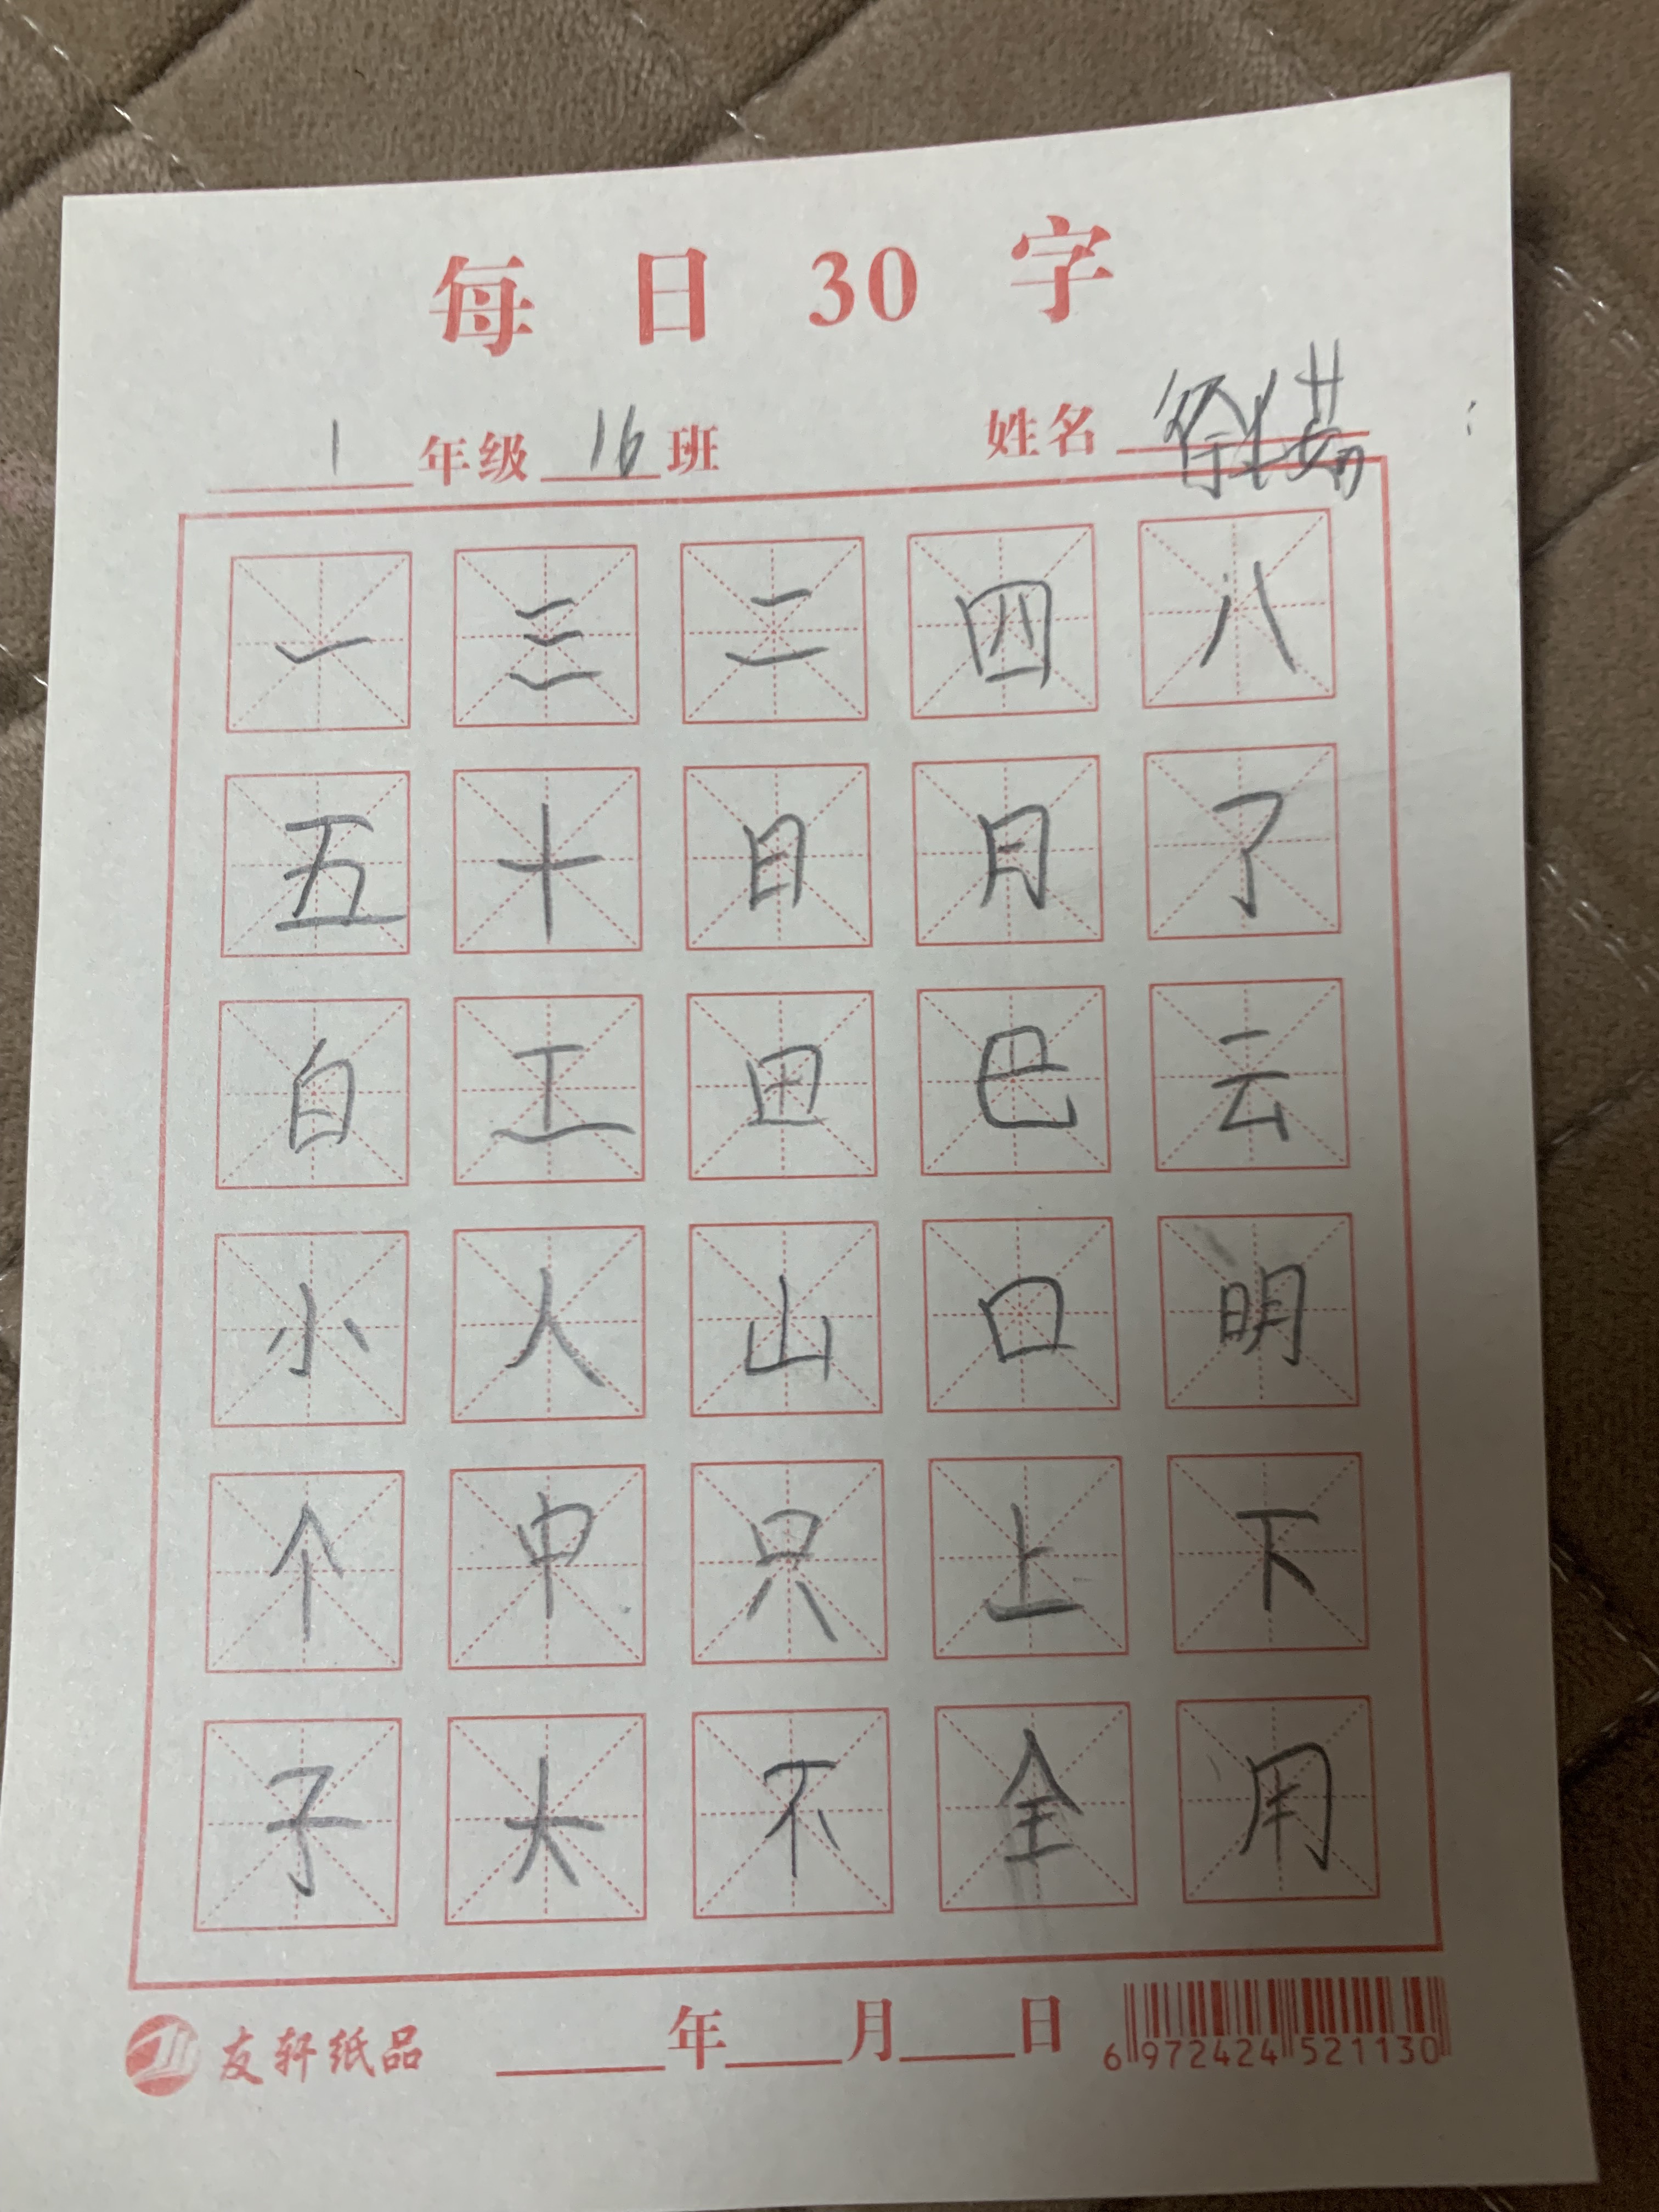 每日30字
1年级16班 姓名徐
一三二四八
五十日月了
白工田巴云
小人山口明
个中只上下
子大不全用
友轩纸品 年月日 6 972424 521130